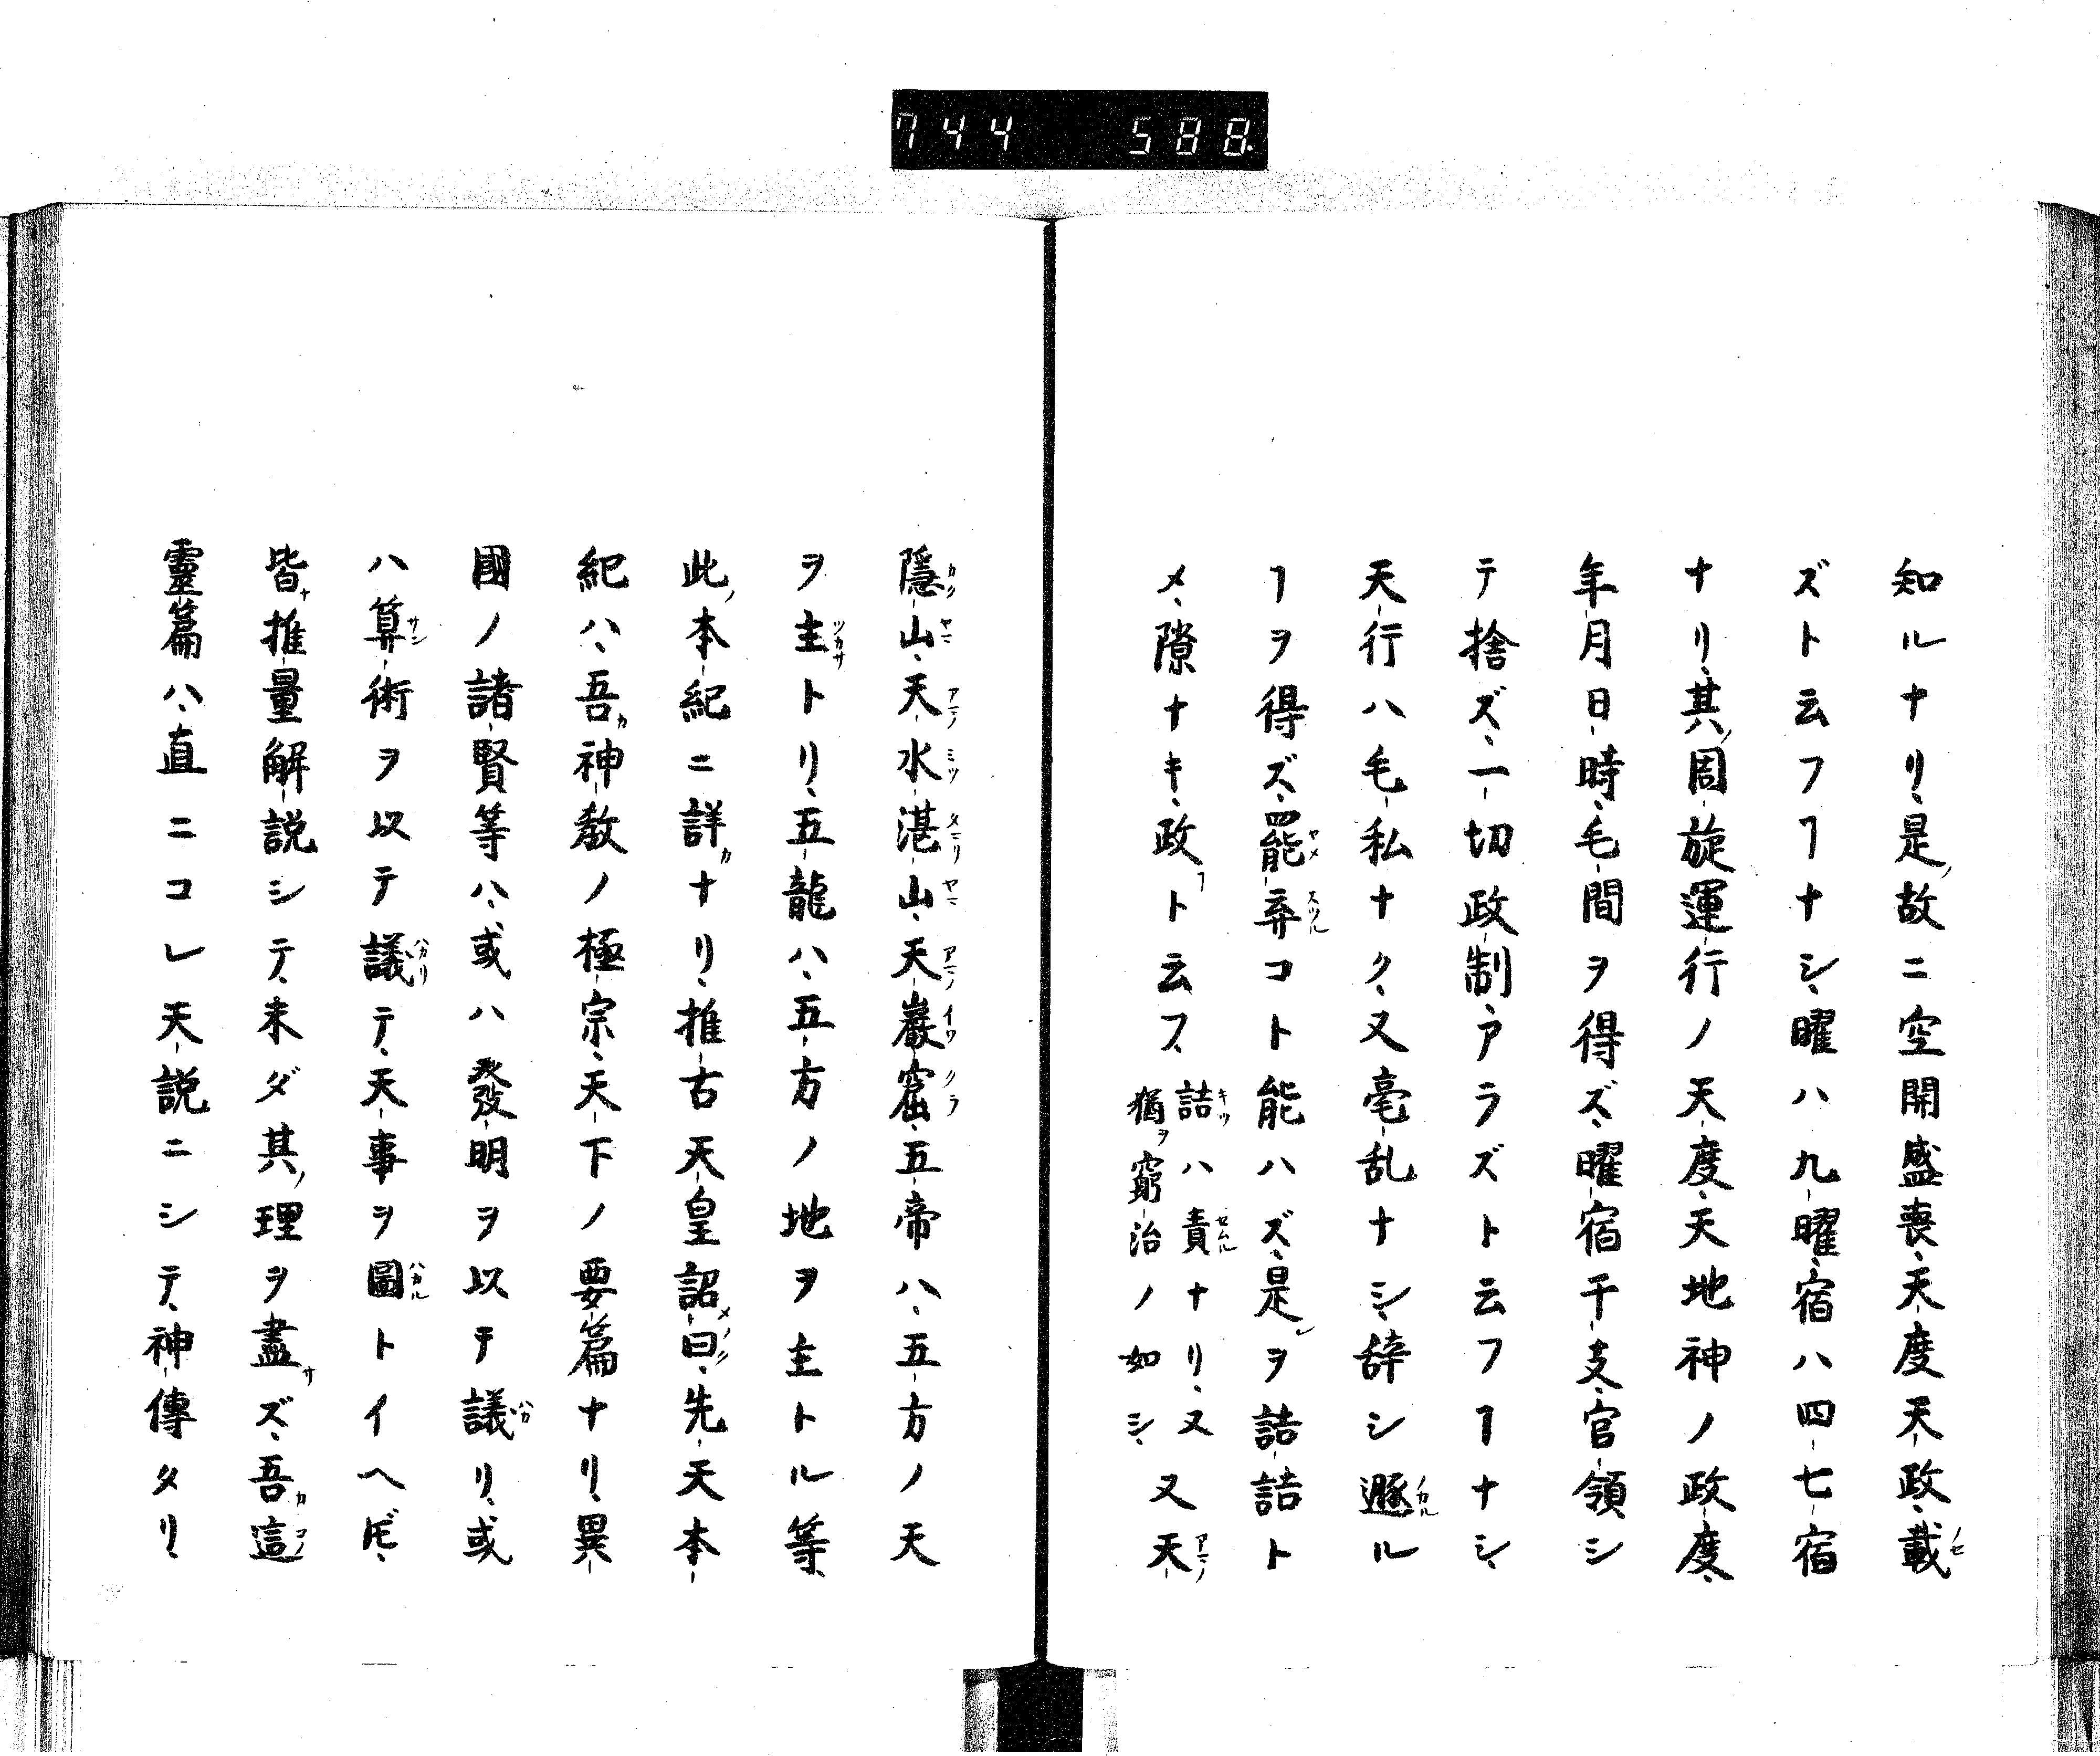 744 588.
知ルナリ、是ノ故ニ空開盛喪、天度天政、載
ズト云フヿナシ、曜ハ九曜、宿ハ四七宿
ナリ、其ノ周旋運行ノ天度、天地神ノ政度、
年月日時、毛間ヲ得ズ、曜宿干支、官領シ
テ捨ズ、一切政制、アラズト云フヿナシ、
天行ハ毛私ナク、又毫乱ナシ、辞シ遯ル
ヿヲ得ズ、罷弃コト能ハズ、是レヲ詰詰ト
メ、隙ナキ、政ヿト云フ、詰ハ責ナリ、又猶ヲ窮治ノ如シ、又天
隱山、天水湛山、天巖窟、五帝ハ、五方ノ天
ヲ主トリ、五龍ハ、五方ノ地ヲ主トル等、
此ノ本紀ニ詳カナリ、推古天皇詔曰、先天本
紀ハ、吾カ神教ノ極宗、天下ノ要篇ナリ、異
國ノ諸賢等ハ、或ハ發明ヲ以テ議リ、或
ハ算術ヲ以テ議テ、天事ヲ圖トイヘ𪜈、
皆ナ推量解説シテ、未ダ其ノ理ヲ盡サズ、吾カ這
靈篇ハ、直ニコレ天説ニシテ、神傳タリ、